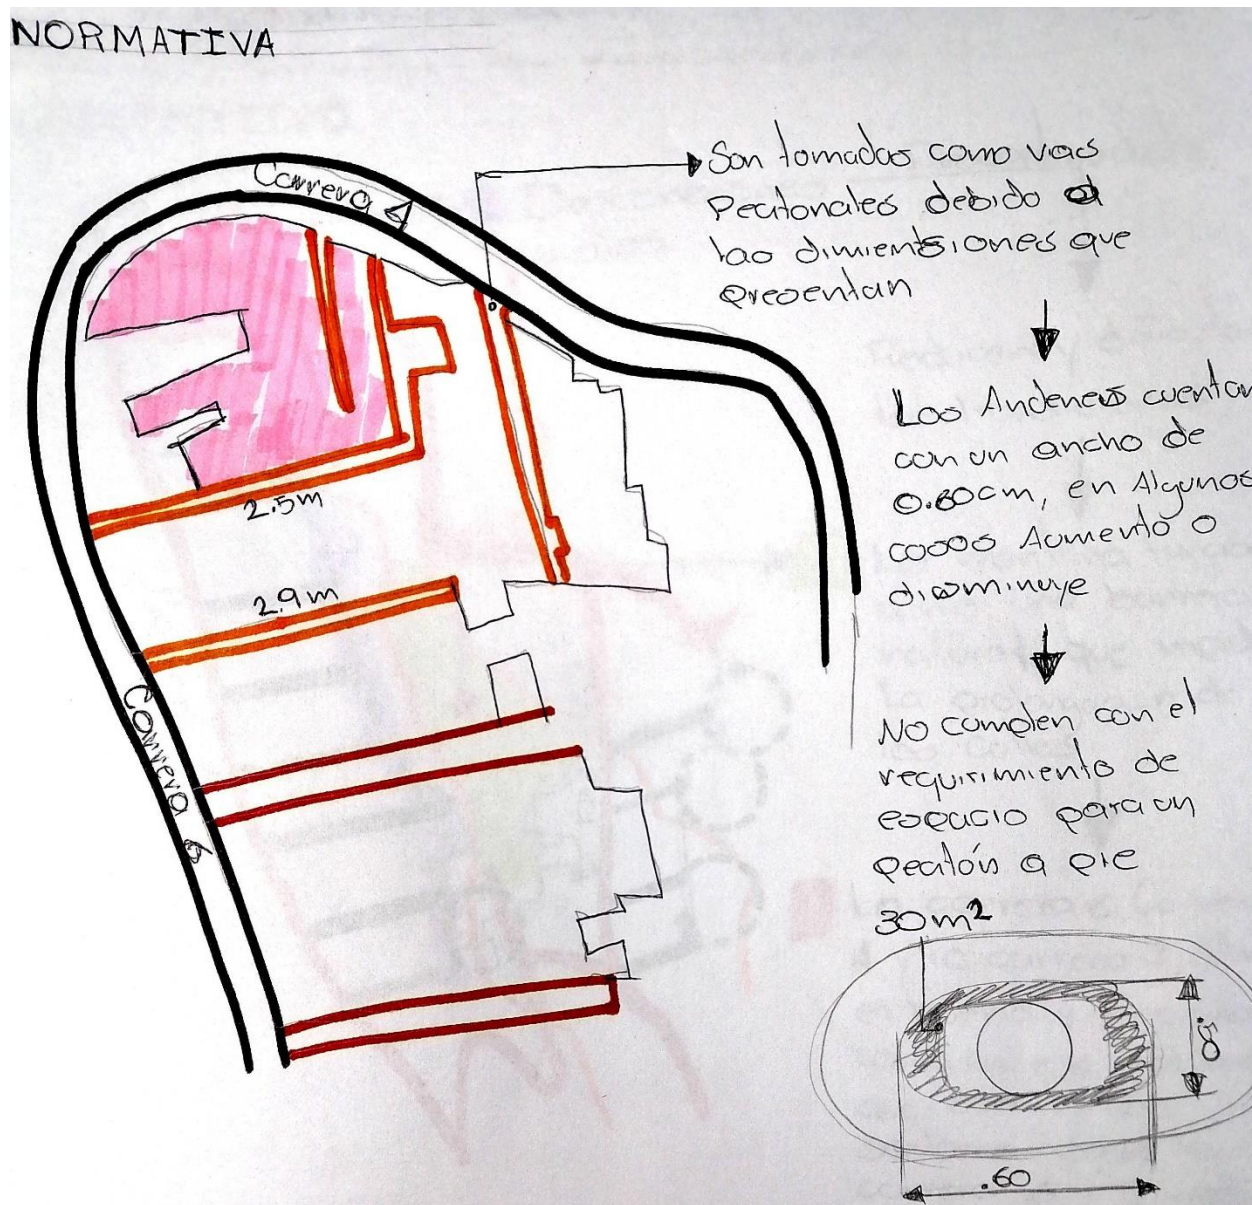 NORMATIVA
Carrera 4
Son tomadas como vias
Peatonales debido a
las dimiensiones que
presentan
Los Andenes cuentan
con un ancho de
0.60cm, en Algunos
casos Aumento o
disminuye
No cumplen con el
requirimiento de
espacio para un
peatón a pie
30m²
2.5m
2.9m
Carrera 6
.50
.60